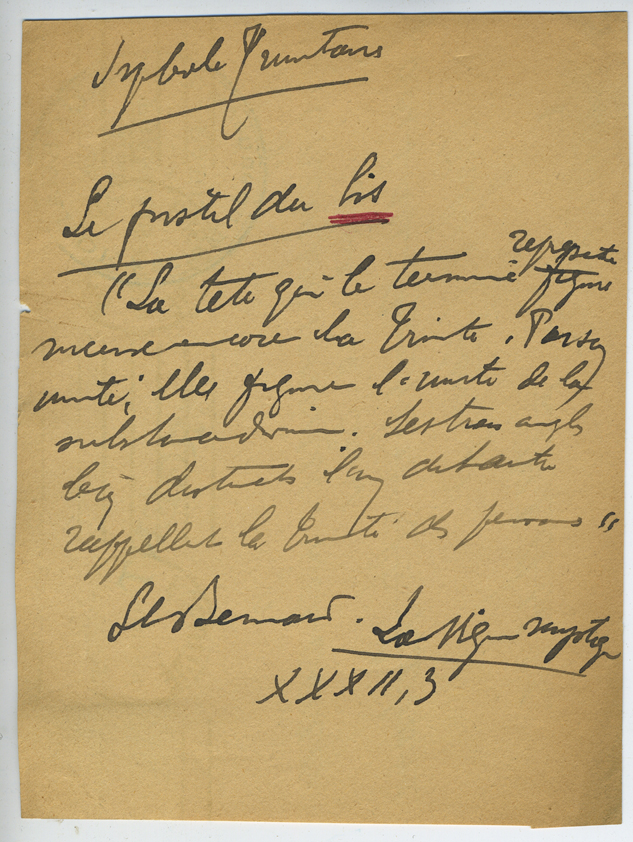 Symbole Trinitaire
Le pistil du lis
représente
"La tête qui le termine figure
encore la Trinité. Par son
unité, elle figure l'unité de la
substance divine. Les trois angles
bien distincts l'un de l'autre
rappellent la Trinité des personnes"
St Bernard. La Vigne mystique
XXXII, 3